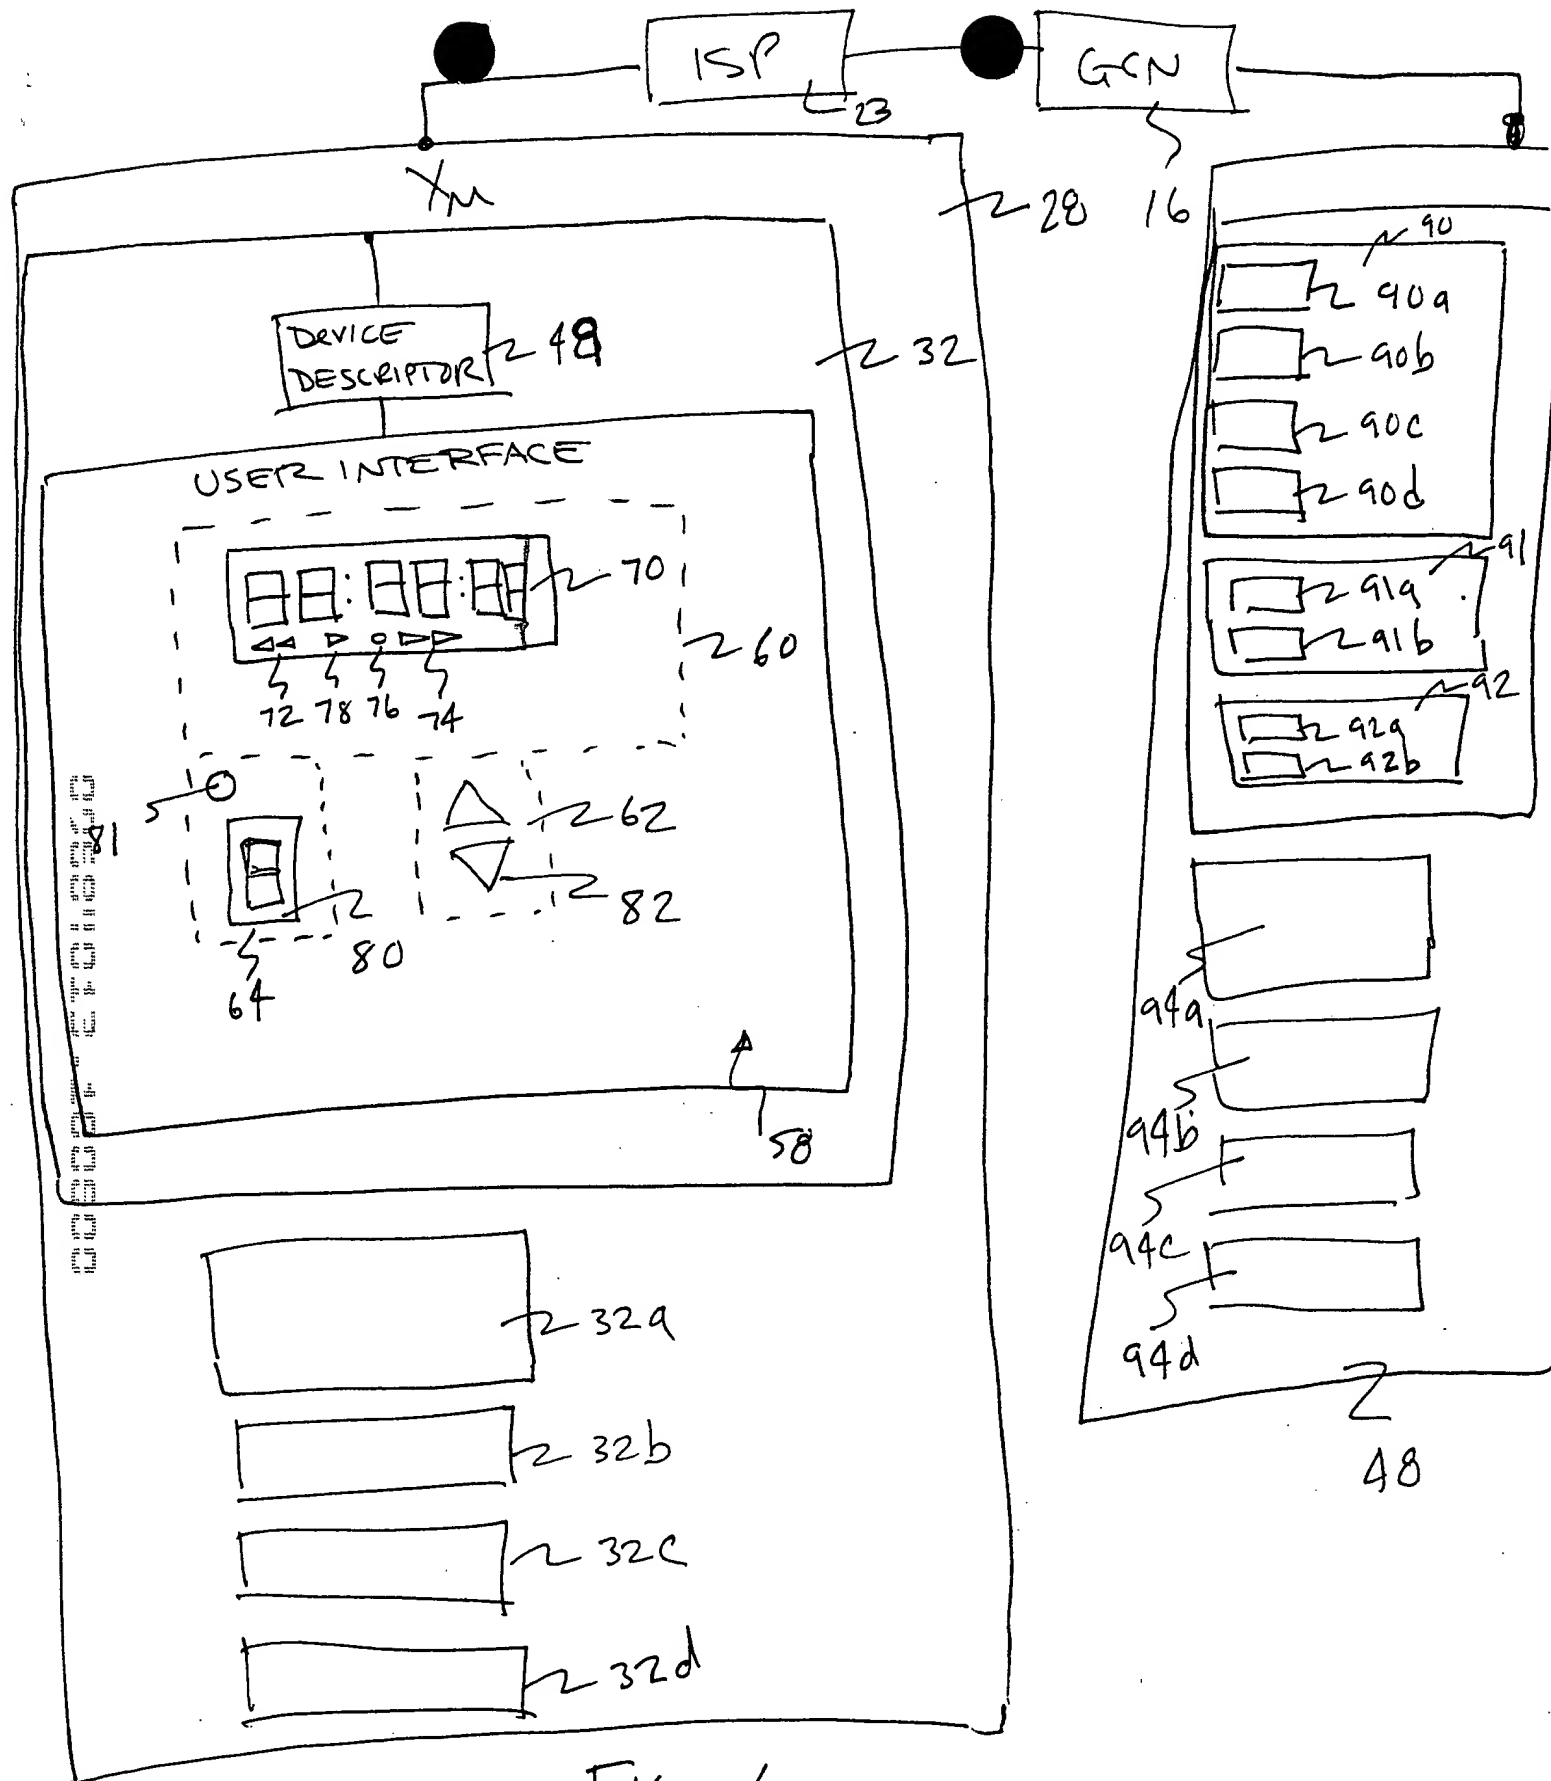 ISP
23
GCN
16
XM
28
DEVICE
DESCRIPTOR
49
32
USER INTERFACE
70
60
72 78 76 74
81
62
82
80
64
58
32a
32b
32c
32d
90
90a
90b
90c
90d
91
91a
91b
92
92a
92b
94a
94b
94c
94d
48